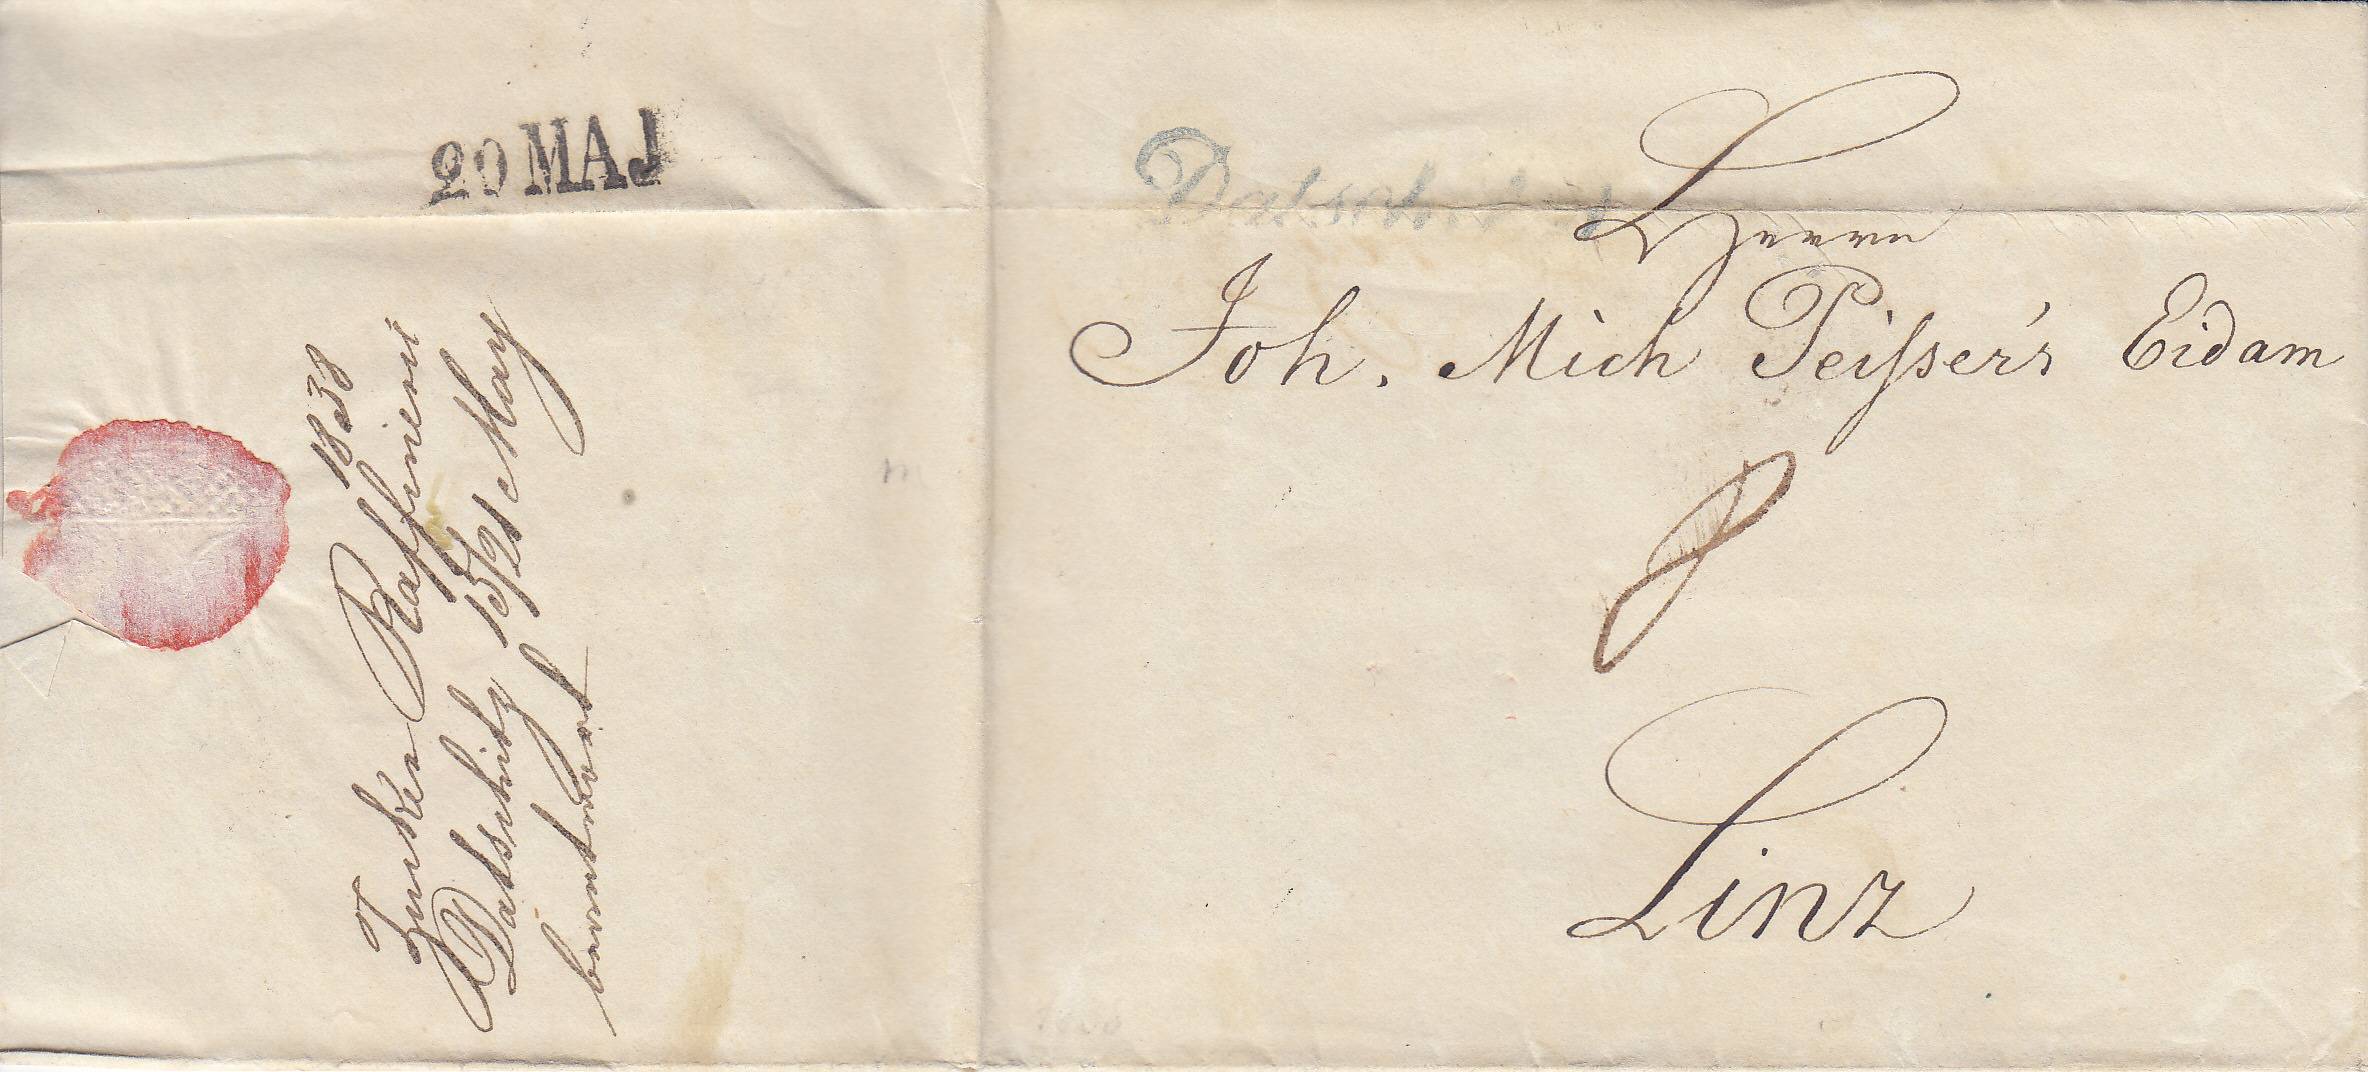 20 MAJ
1838
Zucker Raffinerie
Datschitz 15/21 May
beantwort
Datschitz
Herrn
Joh. Mich Peißer's Eidam
8
Linz